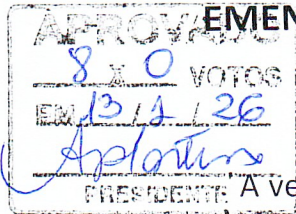 EMEN
APROVADO
8 X 0 VOTOS
EM 13 / 1 / 26
PRESIDENTE A ve